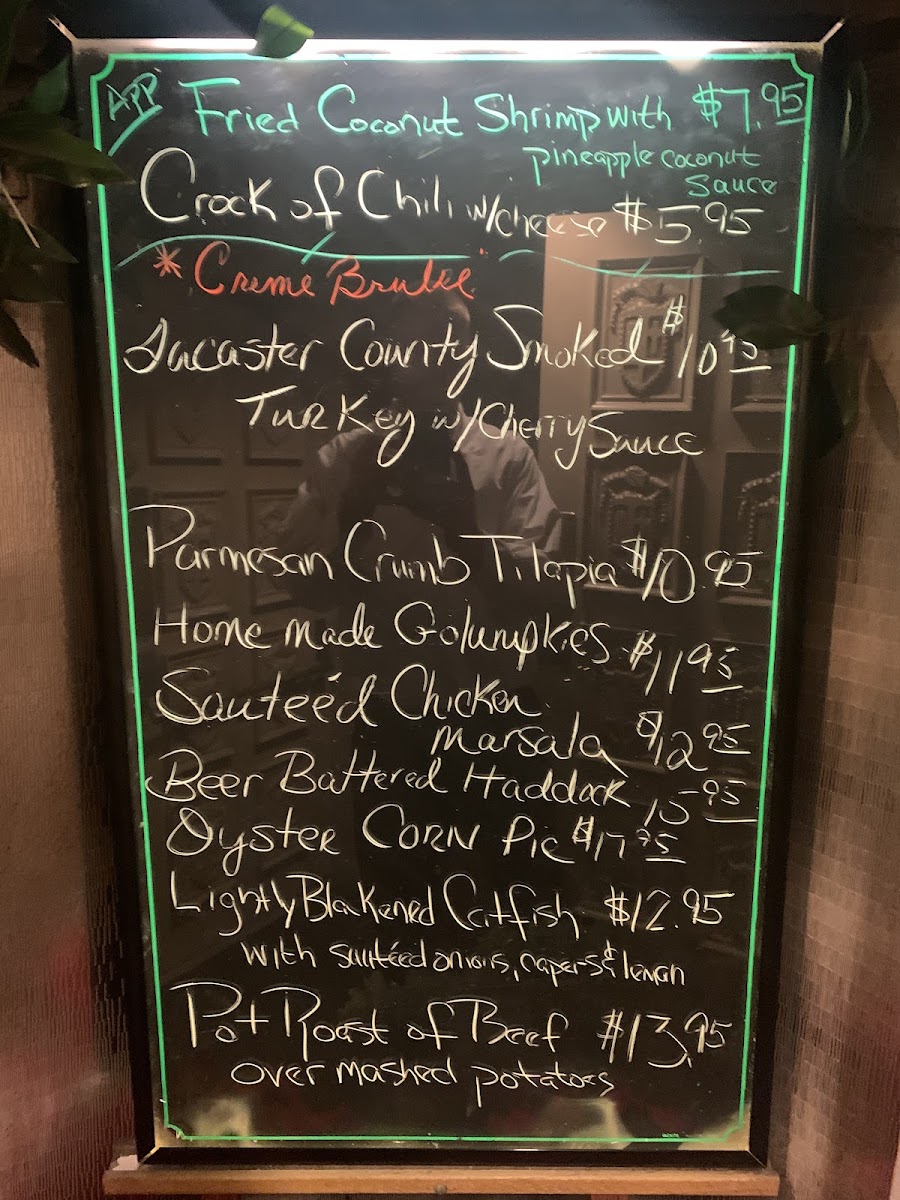 APP Fried Coconut Shrimp with $7.95
pineapple coconut
Sauce
Crock of Chili w/cheese $5.95
* Creme Brulee
Lancaster County Smoked $10.95
Turkey w/Cherry Sauce
Parmesan Crumb Tilapia $10.95
Home made Golumpkies $11.95
Sauteéd Chicken
Marsala $12.95
Beer Battered Haddock 15.95
Oyster Corn Pie $17.95
Lightly Blakened Catfish $12.95
with sautéed onions, capers & lemon
Pot Roast of Beef $13.95
over mashed potatoes